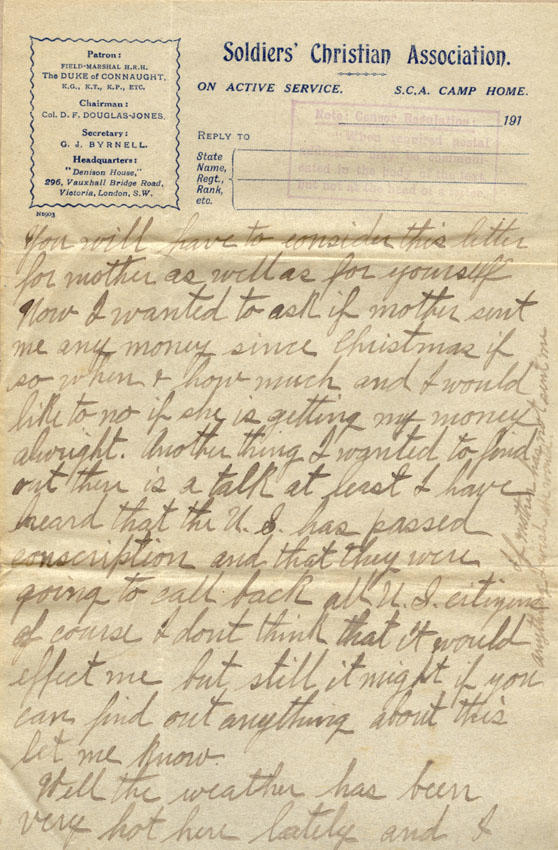 Patron:
FIELD-MARSHAL H.R.H.
The DUKE of CONNAUGHT,
K.G., K.T., K.P., ETC.
Chairman:
Col. D. F. DOUGLAS-JONES.
Secretary:
G. J. BYRNELL.
Headquarters:
"Denison House,"
296, Vauxhall Bridge Road,
Victoria, London, S.W.
Soldiers' Christian Association.
ON ACTIVE SERVICE. S.C.A. CAMP HOME.
191
Note: Censor Regulation:
When required postal
but not at the head of a
REPLY TO
State
Name,
Regt.,
Rank,
etc.
You will have to consider this letter
for mother as well as for yourself
Now I wanted to ask if mother sent
me any money since Christmas if
so when & how much and I would
like to no if she is getting my money
alright. Another thing I wanted to find
out there is a talk at least I have
heard that the U.S. has passed
conscription and that they were
going to call back all U.S. citizens
of course I dont think that it would
effect me but still it might if you
can find out anything about this
let me know.
Well the weather has been
very hot here lately and I
If mother has not sent me
anything I wish she would